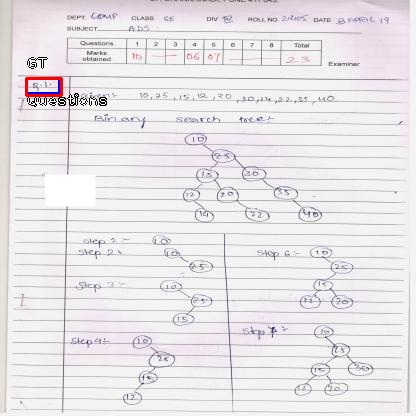 DEPT. COMP CLASS SE DIV ROLL NO. DATE 8 APRIL 19
SUBJECT ADS
Questions 1 2 3 4 5 6 7 8 Total
Marks obtained 10 06 07 23
Examiner
GT
Q.1.
Questions
10, 25, 15, 12, 20, 30, 14, 22, 35, 40.
Binary search tree:-
10
25
15 30
12 20 35
14 22 40
Step 1:- 10
Step 2:- 10
25
Step 3:- 10
25
15
Step 4:- 10
25
15
12
Step 6:- 10
25
15
20
Step 7:- 10
25
15 30
12 20